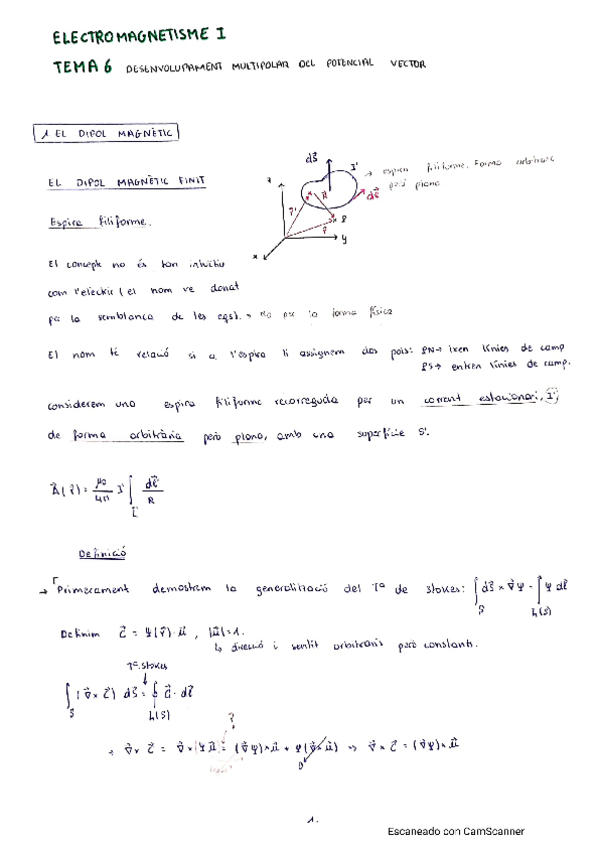 ELECTROMAGNETISME I
TEMA 6 DESENVOLUPAMENT MULTIPOLAR DEL POTENCIAL VECTOR
1 EL DIPOL MAGNÈTIC
EL DIPOL MAGNÈTIC FINIT
dS⃗
I'
→ espira filiforme. Forma arbitrària
però plana
dℓ⃗
R
r⃗'
P
r⃗
z
y
x
Espira filiforme.
El concepte no és tan intuïtiu
com l'elèctric (el nom ve donat
per la semblança de les eqs). → No per la forma física
El nom té relació si a l'espira li assignem dos pols: PN → ixen línies de camp
PS → entren línies de camp.
considerem una espira filiforme recorreguda per un corrent estacionari, I'
de forma arbitrària però plana, amb una superfície S'.
A⃗(r⃗) = μ₀/4π I' ∫ dℓ⃗'/R
Definició
→ Primerament demostrem la generalització del Tª de Stokes: ∫ dS⃗ × ∇⃗Ψ = ∫ Ψ dℓ⃗
S L(S)
Definim G⃗ = Ψ(r⃗) · u⃗ , |u⃗| = 1.
↳ direcció i sentit arbitraris però constants.
Tª. Stokes
∫ (∇⃗ × G⃗) dS⃗ = ∮ G⃗ · dℓ⃗
S L(S)
?
→ ∇⃗ × G⃗ = ∇⃗ × (Ψu⃗) = (∇⃗Ψ) × u⃗ + Ψ(∇⃗ × u⃗) ⇒ ∇⃗ × G⃗ = (∇⃗Ψ) × u⃗
0
1.
Escaneado con CamScanner